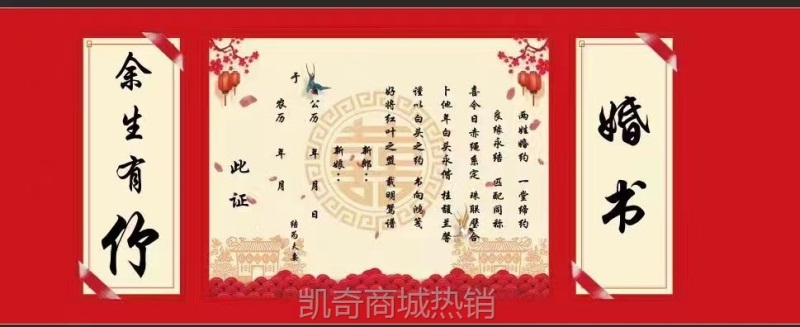 婚书
两姓婚约 一堂缔约
良缘永结 匹配同称
喜今日赤绳系定 珠联璧合
卜他年白头永偕 桂馥兰馨
谨以白头之约 书向鸿笺
好将红叶之盟 载明鸳谱
新郎：
新娘：
于 公历 年 月 日
农历 年 月
结为夫妻
此证
余生有你
凯奇商城热销